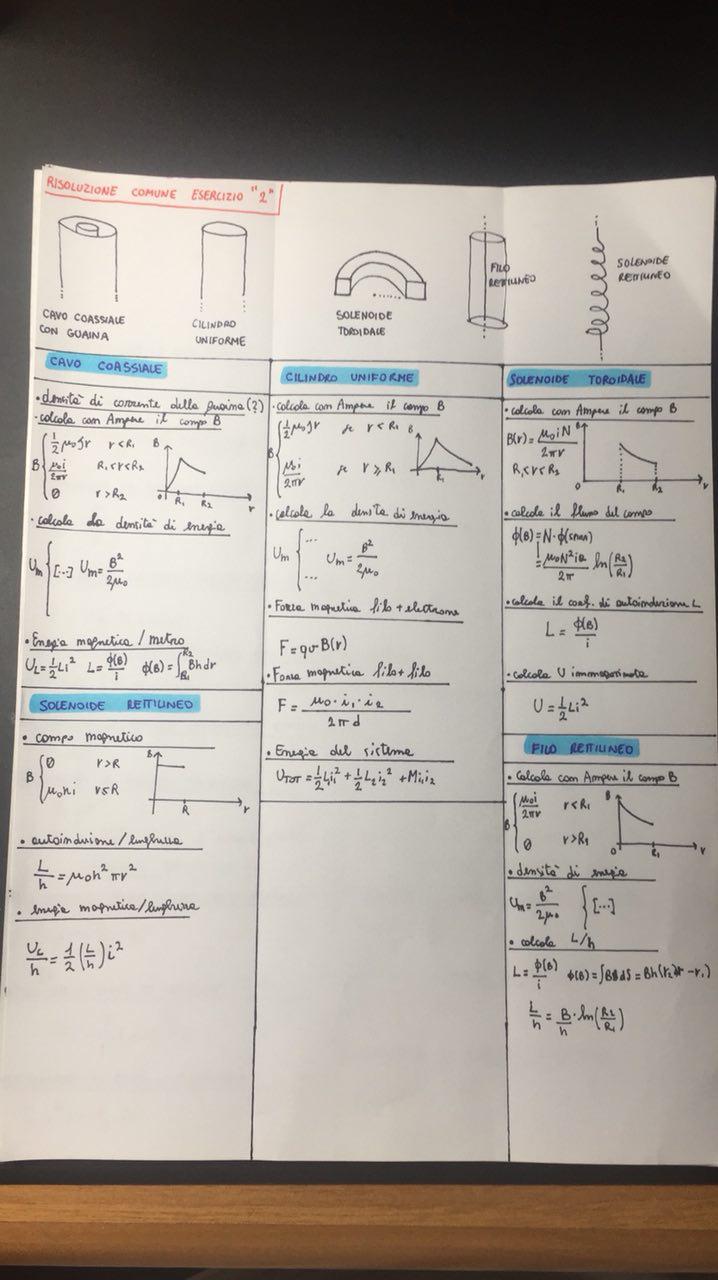 RISOLUZIONE COMUNE ESERCIZIO "2"
CAVO COASSIALE
CON GUAINA
CILINDRO
UNIFORME
SOLENOIDE
TOROIDALE
FILO
RETTILINEO
SOLENOIDE
RETTILINEO
CAVO COASSIALE
• densità di corrente della guaina (?)
• calcola con Ampere il campo B
B { ½ μ₀ J r   r < R₁
μ₀i/2πr   R₁ < r < R₂
0   r > R₂
B
0 R₁ R₂ r
• calcola la densità di energia
Um { [...] Um = B²/2μ₀
• Energia magnetica / metro
U_L = ½ Li²   L = ϕ(B)/i   ϕ(B) = ∫_R₁^R₂ Bhdr
SOLENOIDE RETTILINEO
• campo magnetico
B { 0   r > R
μ₀ni   r ≤ R
B
R r
• autoinduzione / lunghezza
L/h = μ₀n² πr²
• energia magnetica / lunghezza
U_L/h = ½ (L/h) i²
CILINDRO UNIFORME
• calcola con Ampere il campo B
B { ½ μ₀ J r   se r < R₁
μ₀i/2πr   se r ≥ R₁
B
R₁ r
• calcola la densità di energia
Um { ...   Um = B²/2μ₀
...
• Forza magnetica filo + elettrone
F = qvB(r)
• Forza magnetica filo + filo
F = μ₀ · i₁ · i₂ / 2πd
• Energia del sistema
U_TOT = ½ L₁i₁² + ½ L₂i₂² + Mi₁i₂
SOLENOIDE TOROIDALE
• calcola con Ampere il campo B
B(r) = μ₀iN/2πr
R₁ < r < R₂
B
R₁ R₂ r
• calcola il flusso del campo
ϕ(B) = N · ϕ(spira)
= μ₀N²ia/2π ln(R₂/R₁)
• calcola il coef. di autoinduzione L
L = ϕ(B)/i
• calcola U immagazzinata
U = ½ Li²
FILO RETTILINEO
• Calcola con Ampere il campo B
B { μ₀i/2πr   r < R₁
0   r > R₁
B
0 R₁ r
• densità di energia
Um = B²/2μ₀   { [...]
• calcola L/h
L = ϕ(B)/i   ϕ(B) = ∫B dS = Bh(r₂ - r₁)
L/h = B/h · ln(R₂/R₁)